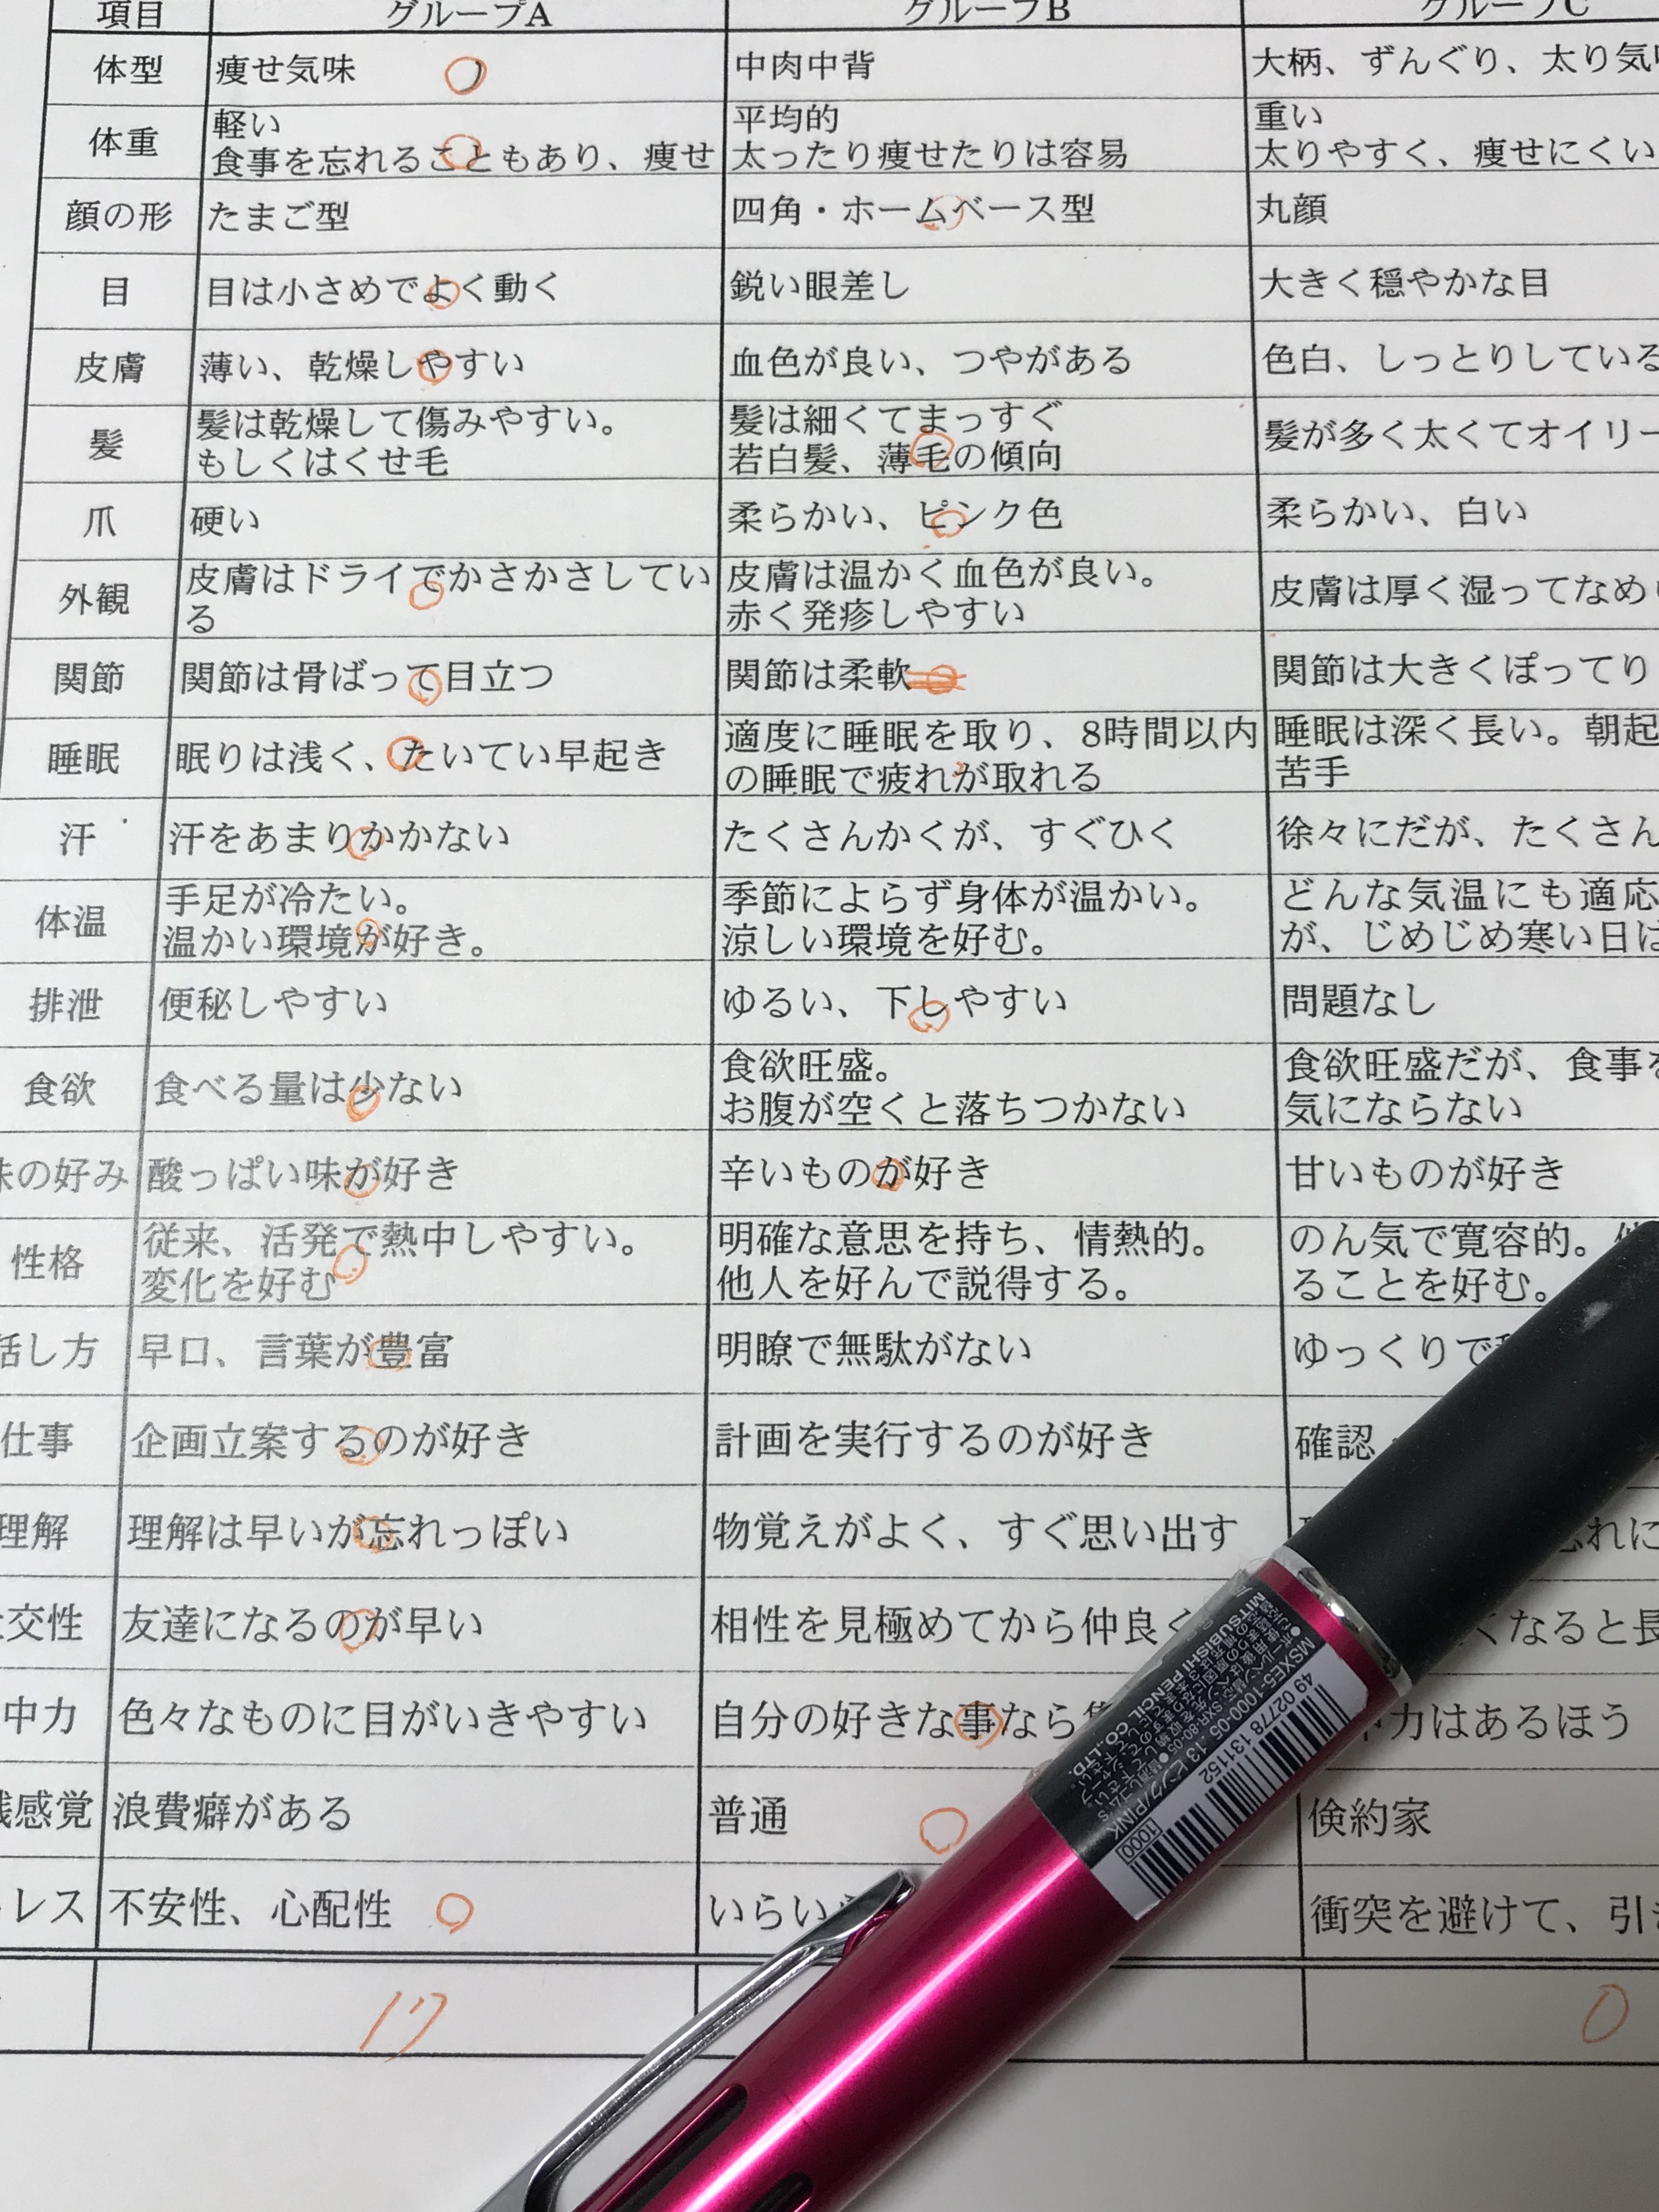 項目 グループA グループB グループC
体型 痩せ気味 中肉中背 大柄、ずんぐり、太り気
体重 軽い 平均的 重い
食事を忘れることもあり、痩せ 太ったり痩せたりは容易 太りやすく、痩せにくい
顔の形 たまご型 四角・ホームベース型 丸顔
目 目は小さめでよく動く 鋭い眼差し 大きく穏やかな目
皮膚 薄い、乾燥しやすい 血色が良い、つやがある 色白、しっとりしている
髪 髪は乾燥して傷みやすい。 髪は細くてまっすぐ 髪が多く太くてオイリー
もしくはくせ毛 若白髪、薄毛の傾向
爪 硬い 柔らかい、ピンク色 柔らかい、白い
外観 皮膚はドライでかさかさしてい 皮膚は温かく血色が良い。 皮膚は厚く湿ってなめ
る 赤く発疹しやすい
関節 関節は骨ばって目立つ 関節は柔軟 関節は大きくぽってり
睡眠 眠りは浅く、たいてい早起き 適度に睡眠を取り、8時間以内 睡眠は深く長い。朝起
の睡眠で疲れが取れる 苦手
汗 汗をあまりかかない たくさんかくが、すぐひく 徐々にだが、たくさん
体温 手足が冷たい。 季節によらず身体が温かい。 どんな気温にも適応
温かい環境が好き。 涼しい環境を好む。 が、じめじめ寒い日は
排泄 便秘しやすい ゆるい、下しやすい 問題なし
食欲 食べる量は少ない 食欲旺盛。 食欲旺盛だが、食事を
お腹が空くと落ちつかない 気にならない
味の好み 酸っぱい味が好き 辛いものが好き 甘いものが好き
性格 従来、活発で熱中しやすい。 明確な意思を持ち、情熱的。 のん気で寛容的。
変化を好む 他人を好んで説得する。 ることを好む。
話し方 早口、言葉が豊富 明瞭で無駄がない ゆっくりで
仕事 企画立案するのが好き 計画を実行するのが好き 確認
理解 理解は早いが忘れっぽい 物覚えがよく、すぐ思い出す 忘れに
交性 友達になるのが早い 相性を見極めてから仲良く くなると長
中力 色々なものに目がいきやすい 自分の好きな事なら 力はあるほう
感覚 浪費癖がある 普通 倹約家
レス 不安性、心配性 いらい 衝突を避けて、引
17 0
MITSUBISHI PENCIL CO.,LTD.
MSXE5-1000-05 .13 ピンク/PINK 1000
49 02778 131152